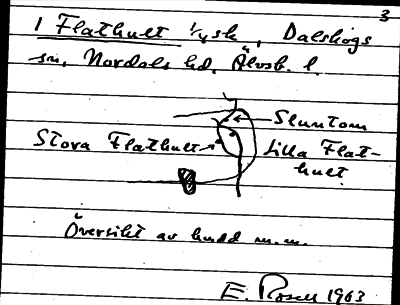 3
1 Flathult 1/4 sk, Dalskogs
sn, Nordals hd, Älvsb. l.
Sluntom
Stora Flathult
Lilla Flat-
hult
Översikt av m.m.
E. 1963